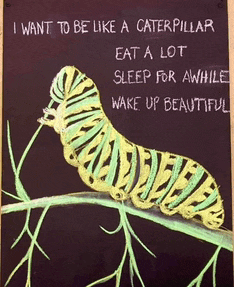 I WANT TO BE LIKE A CATERPILLAR
EAT A LOT
SLEEP FOR AWHILE
WAKE UP BEAUTIFUL